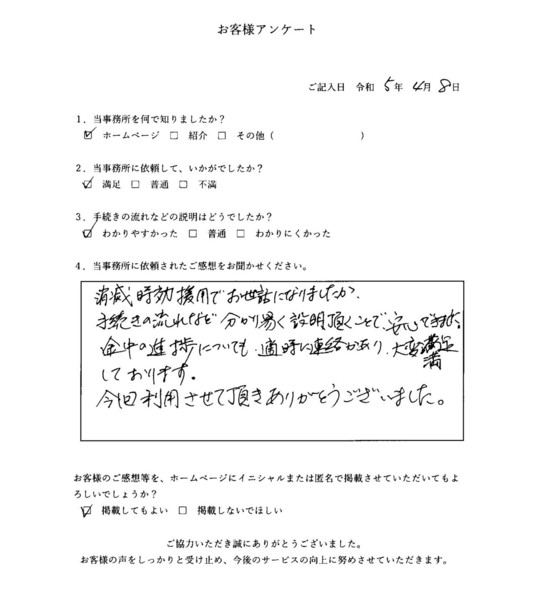 お客様アンケート
ご記入日 令和 5年 4月 8日
1．当事務所を何で知りましたか？
☑ ホームページ □ 紹介 □ その他（ ）
2．当事務所に依頼して、いかがでしたか？
☑ 満足 □ 普通 □ 不満
3．手続きの流れなどの説明はどうでしたか？
☑ わかりやすかった □ 普通 □ わかりにくかった
4．当事務所に依頼されたご感想をお聞かせください。
消滅時効援用でお世話になりましたが、
手続きの流れなど分かり易く説明頂くことで、安心できました。
途中の進捗についても、適時に連絡があり、大変満足
しております。
今回利用させて頂きありがとうございました。
お客様のご感想等を、ホームページにイニシャルまたは匿名で掲載させていただいてもよ
ろしいでしょうか？
☑ 掲載してもよい □ 掲載しないでほしい
ご協力いただき誠にありがとうございました。
お客様の声をしっかりと受け止め、今後のサービスの向上に努めさせていただきます。